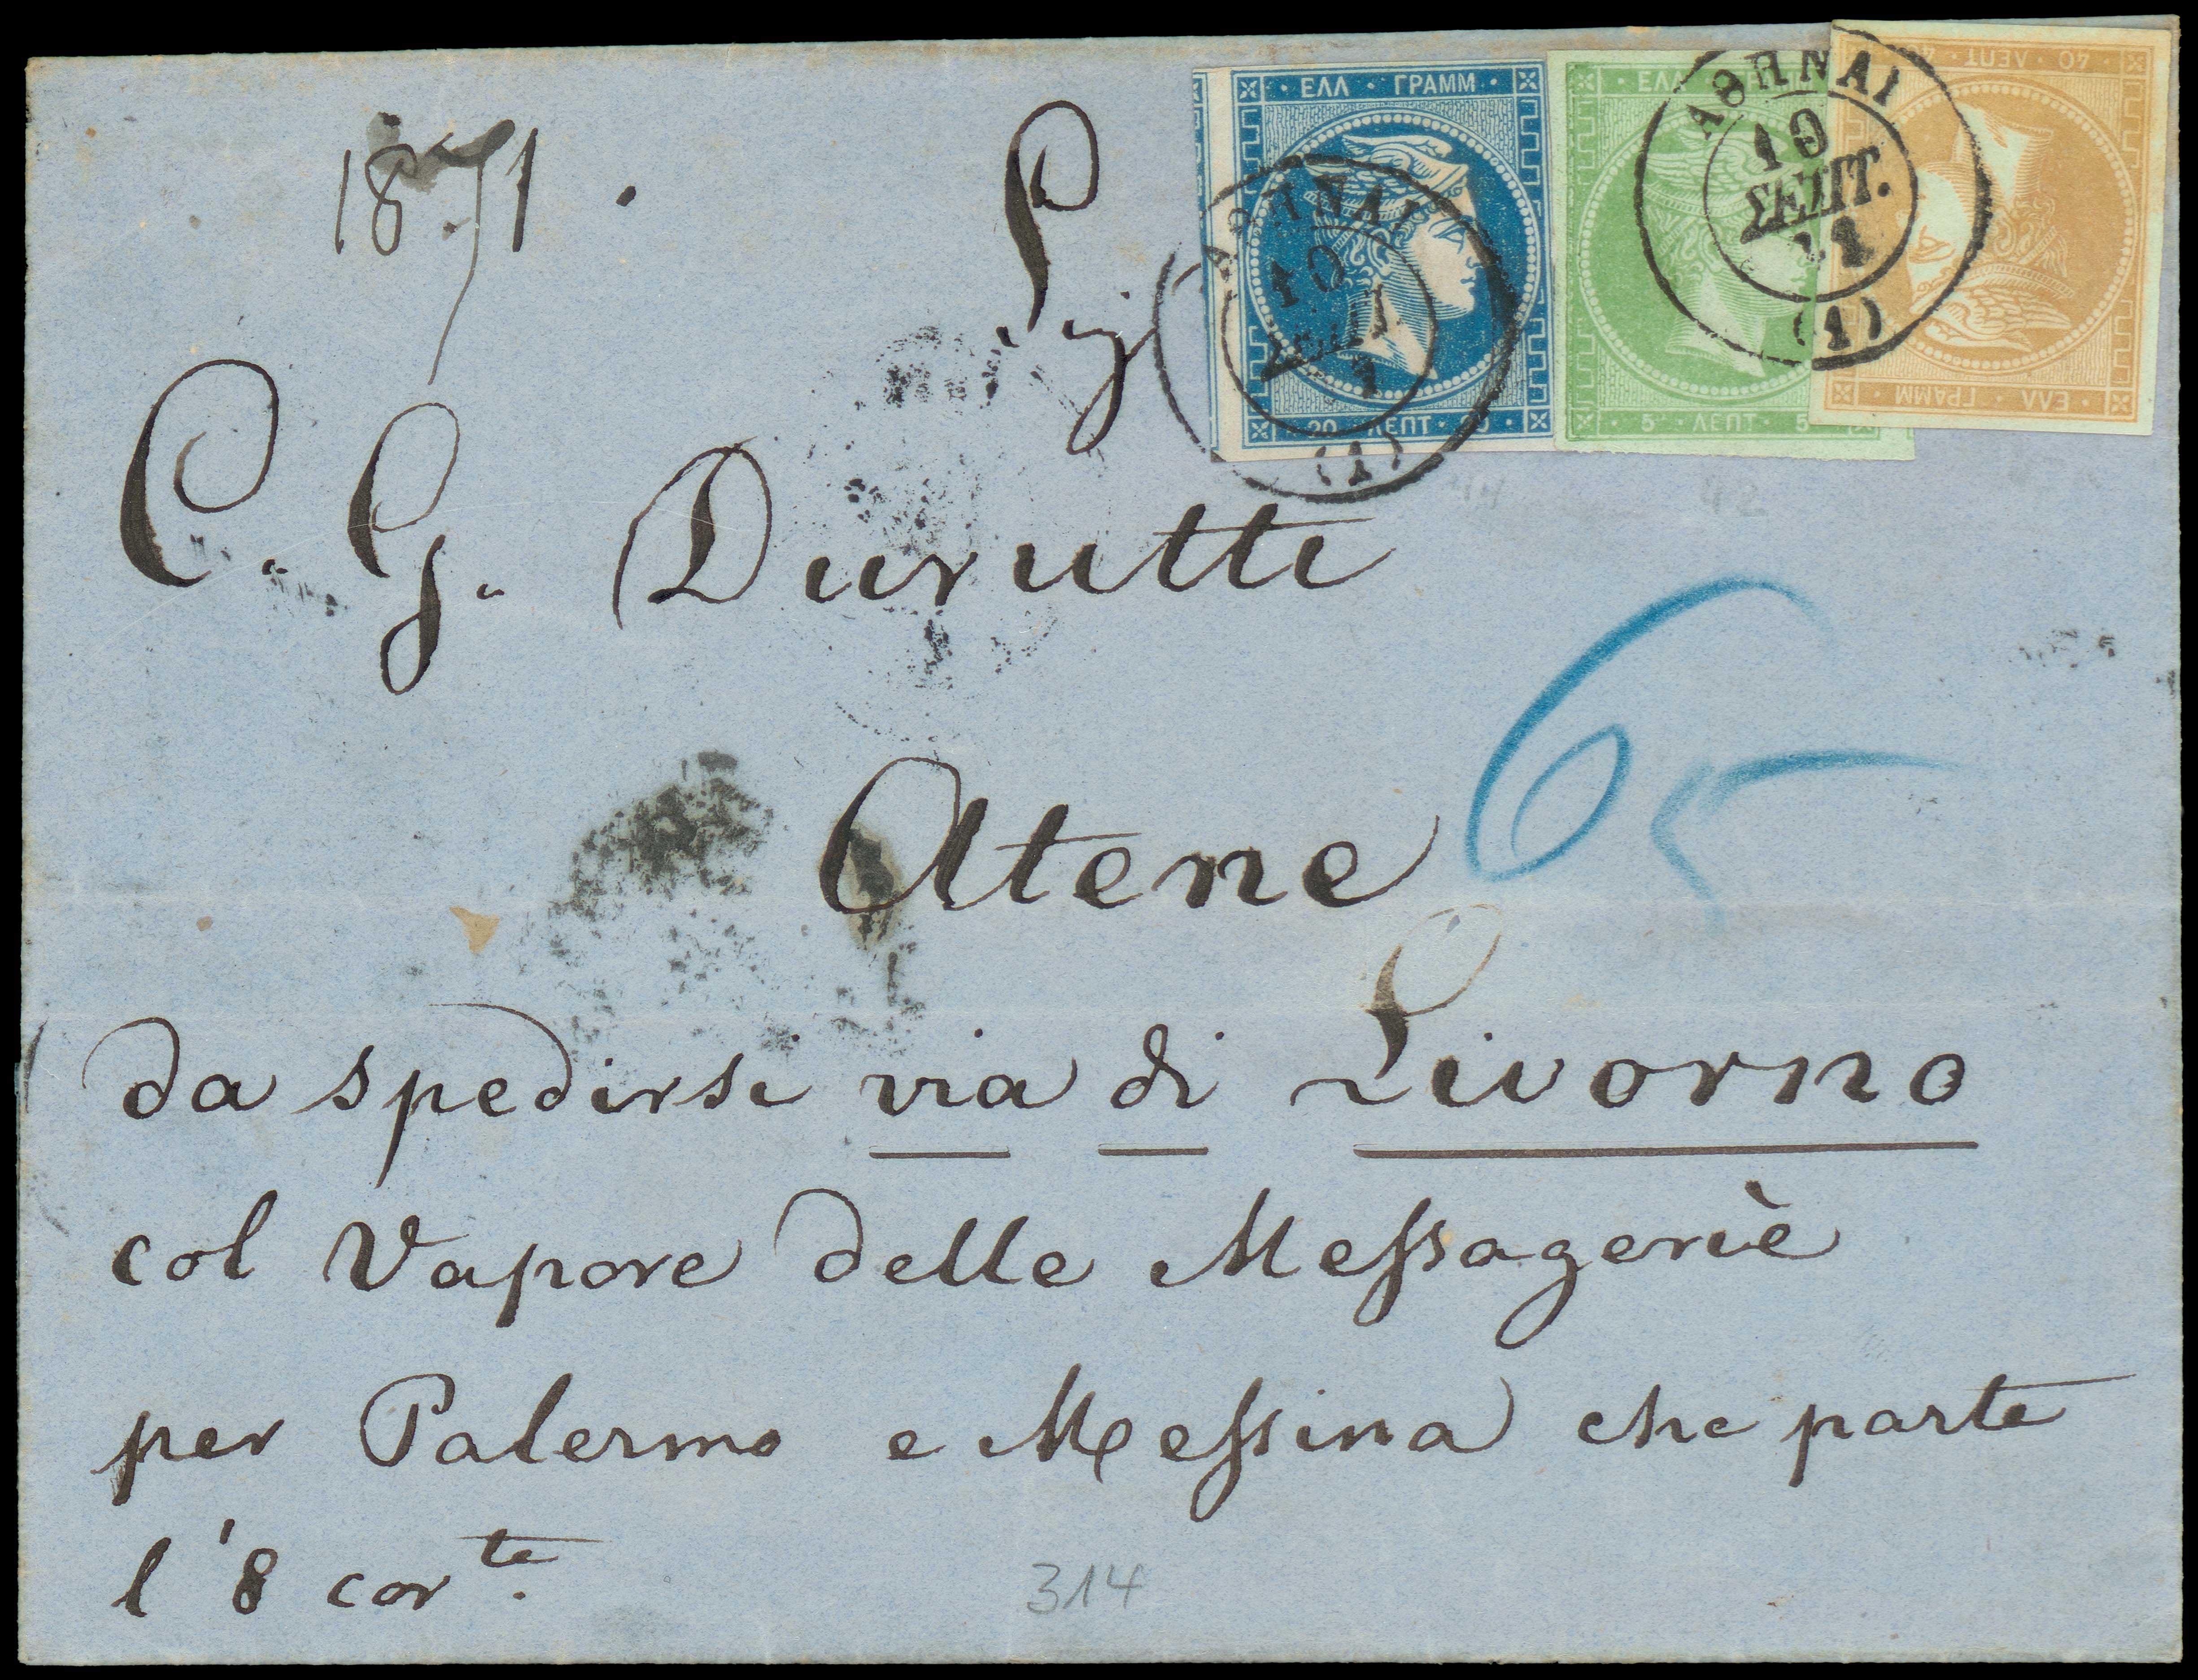 1871.
Sig
C. G. Durutti
Atene
65
da spedirsi via di Livorno
col Vapore delle Messageriè
per Palermo e Messina che parte
l'8 corte.
314
ΕΛΛ · ΓΡΑΜΜ
20 · ΛΕΠΤ · 20
ΑΘΗΝΑΙ
10
ΣΕΠΤ.
(1)
ΕΛΛ
5 · ΛΕΠΤ · 5
ΑΘΗΝΑΙ
10
ΣΕΠΤ.
71
(1)
40 · ΛΕΠΤ · 4
ΕΛΛ · ΓΡΑΜΜ